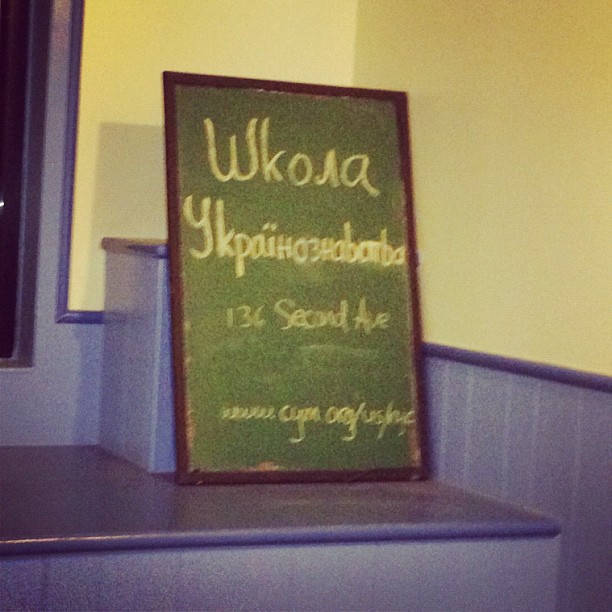 Школа
Українознавства
136 Second Ave
www.cym.org/us/nyc